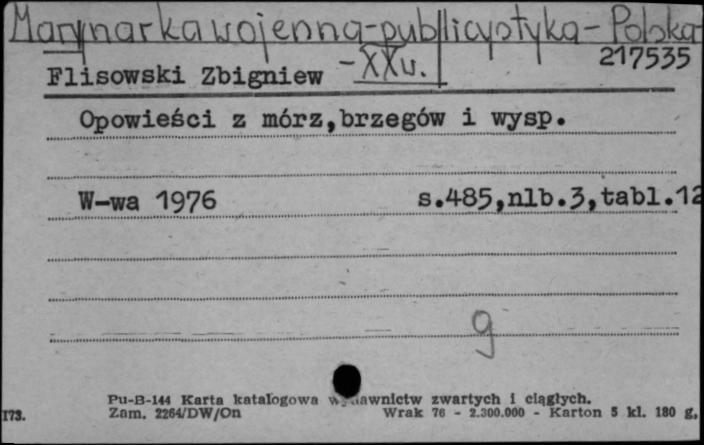 Marynarka wojenna-publicystyka-Polska
-XXw.
217535
Flisowski Zbigniew
Opowieści z mórz,brzegów i wysp.
W-wa 1976 s.485,nlb.3,tabl.12
g
Pu-B-144 Karta katalogowa wydawnictw zwartych i ciągłych.
173. Zam. 2264/DW/On Wrak 76 - 2.300.000 - Karton 5 kl. 180 g.